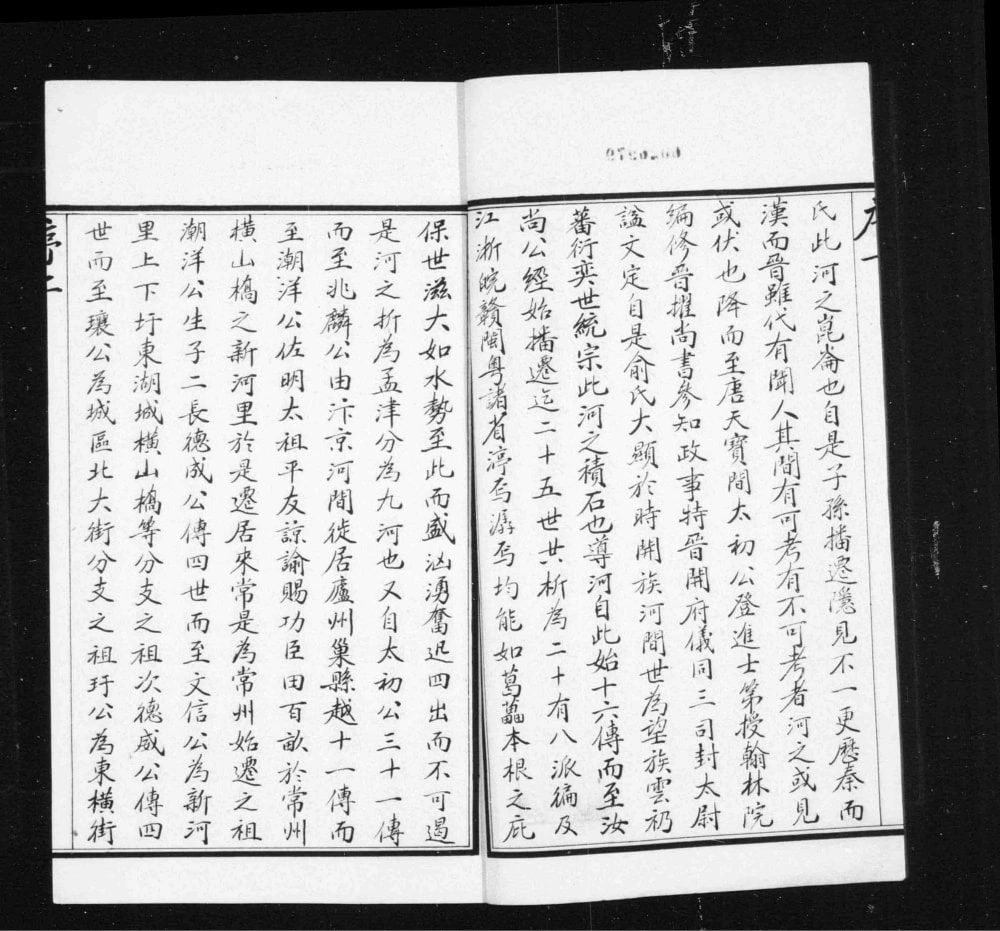 氏此河之崑崙也自是子孫播遷隱見不一更歷秦而
漢而晉雖代有聞人其間有可考有不可考者河之或見
或伏也降而至唐天寶間太初公登進士第授翰林院
編修晉擢尚書參知政事特晉開府儀同三司封太尉
諡文定自是俞氏大顯於時開族河間世為望族雲礽
蕃衍奕世統宗此河之積石也導河自此始十六傳而至汝
尚公經始播遷迄二十五世共析為二十有八派徧及
江浙皖贛閩粵諸省渟焉潺焉均能如葛藟本根之庇
保世滋大如水勢至此而盛汹湧奮迅四出而不可遏
是河之折為孟津分為九河也又自太初公三十一傳
而至兆麟公由汴京河間徙居廬州巢縣越十一傳而
至潮洋公佐明太祖平友諒諭賜功臣田百畝於常州
橫山橋之新河里於是遷居來常是為常州始遷之祖
潮洋公生子二長德成公傳四世而至文信公為新河
里上下圩東湖城橫山橋等分支之祖次德威公傳四
世而至瓖公為城區北大街分支之祖玗公為東橫街